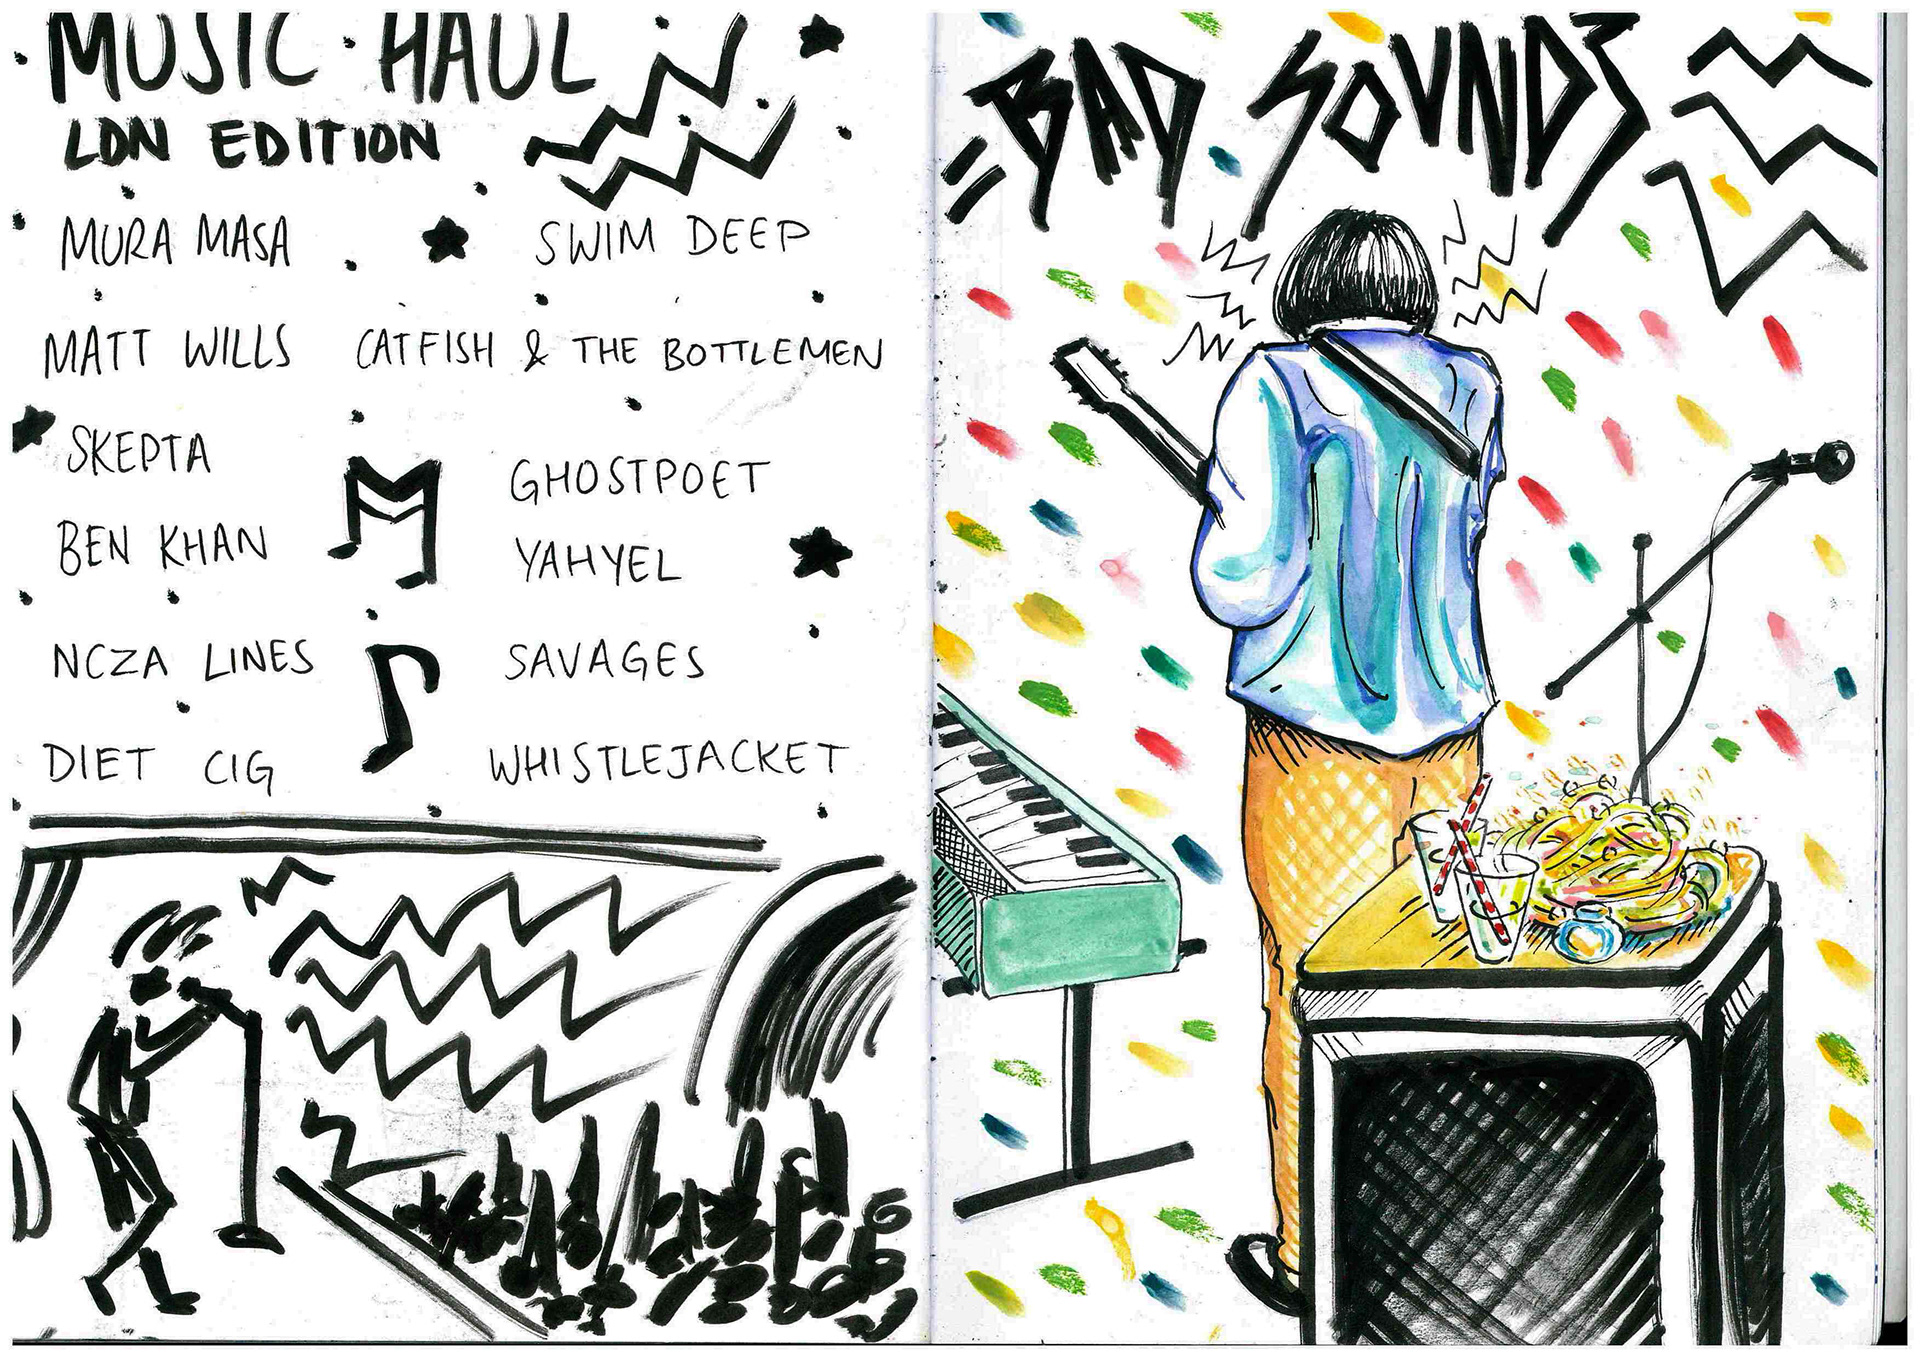 MUSIC · HAUL
LDN EDITION
MURA MASA
SWIM DEEP
MATT WILLS
CATFISH & THE BOTTLEMEN
SKEPTA
GHOSTPOET
BEN KHAN
YAHYEL
NCZA LINES
SAVAGES
DIET CIG
WHISTLEJACKET
BAD SOUNDS